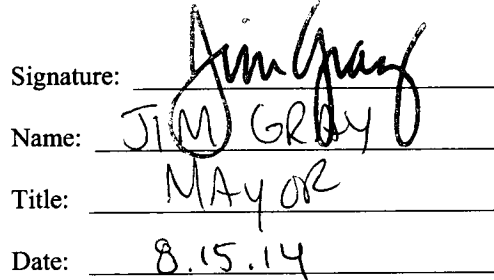 Signature: Jim Gray
Name: JIM GRAY
Title: MAYOR
Date: 8.15.14